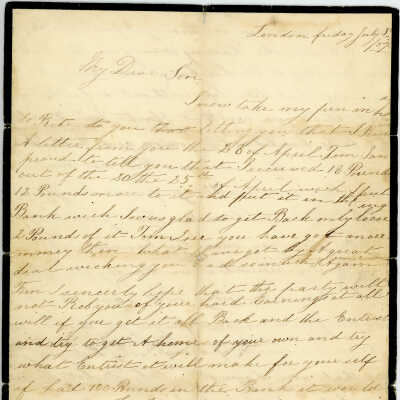 London friday July 3
/57
My Dear Son
I now take my pen in h
to Rite to you thos letting you that I Reiv
A letter from you the 26 of April Tim I am
proud to tell you that I received 18 Pound
out of the 30 the 25th of April wich I put
12 Pounds more to it and put it in the
Bank wich I was glad to get Back only loose
2 Pound of it Tim I see you have got more
money then what
deal
Tim I sincerly hope that the party will
not Rob you of your hard Earnings it all
will if you get it all Back and the Entrest
and try to get A home of your own and try
what Entrest it will make for your self
if had 100 Pounds in the Bank it would